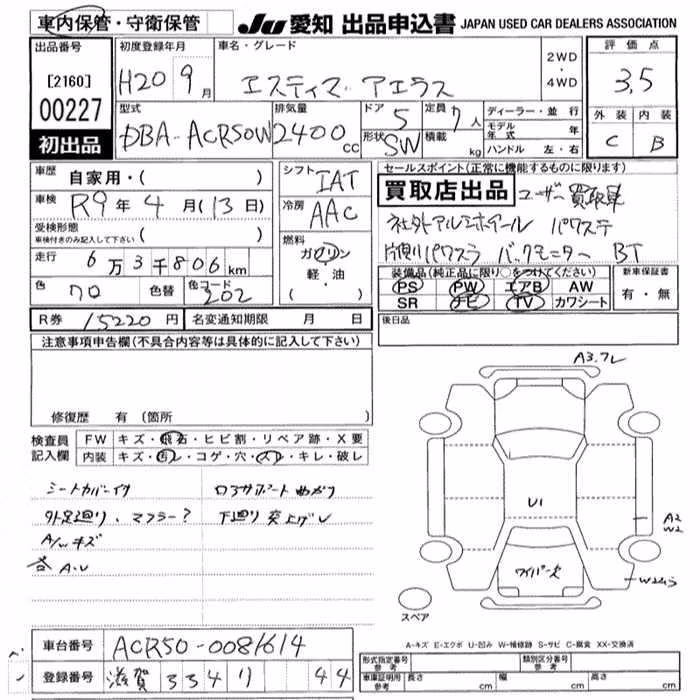 車内保管・守衛保管 JU 愛知 出品申込書 JAPAN USED CAR DEALERS ASSOCIATION
出品番号 初度登録年月 車名・グレード 2WD・4WD 評価点
[2160] H20 9月 エスティマ アエラス 3,5
00227 型式 排気量 ドア 5 定員 7人 ディーラー・並行 外装 内装
初出品 DBA-ACR50W 2400cc 形状 SW 積載 kg モデル年式 年 C B
ハンドル 左・右
車歴 自家用・( ) シフト IAT セールスポイント(正常に機能するものに限ります)
車検 R9年4月(13日) 冷房 AAC 買取店出品 ユーザー買取車
受検形態 車検付きのみ記入して下さい ( ) 社外アルミホイール パワステ
走行 6万3千806km 燃料 ガソリン 軽・油 ( ・ ) 片側パワスラ バックモニター BT
色 クロ 色替 色コード 202 装備品(純正品に限り○をつけてください) 新車保証書
PS PW エアB AW 有・無
SR ナビ TV カワシート
R券 15220円 名変通知期限 月 日 後日品
注意事項申告欄(不具合内容等は具体的に記入して下さい)
A3.フレ
修復歴 有 (箇所
検査員記入欄 FW キズ・飛石・ヒビ割・リペア跡・X要
内装 キズ・汚レ・コゲ・穴・スレ・キレ・破レ
シートカバーイタ ロアサポート曲がり
U1
外足廻り、マフラー? 下廻り突上げU
A2
W2
A/Wキズ
各 A.U
ワイパー欠
スペア
A-キズ E-エクボ U-凹み W-補修跡 S-サビ C-腐食 XX-交換済
車台番号 ACR50-0081614
登録番号 滋賀 334 44
型式指定番号 参考 類別区分番号 参考
車庫証明用 参考 長さ cm 幅 cm 高さ cm